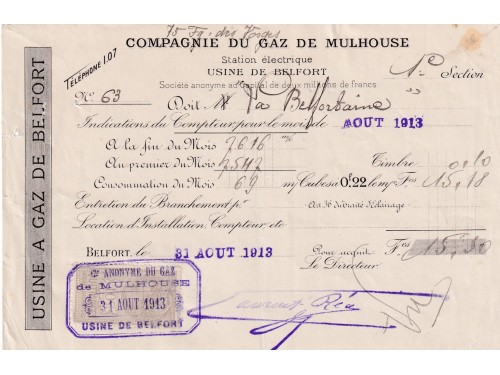 75 Fg. des Vosges
COMPAGNIE DU GAZ DE MULHOUSE
Station électrique
USINE DE BELFORT
Société anonyme au Capital de deux millions de francs
TÉLÉPHONE 1.07
1re Section
No 63
Doit M La Belfortaine
Indications du Compteur pour le mois de AOUT 1913
A la fin du Mois 7616
Au premier du Mois 7547
Timbre 0,10
Consommation du Mois 69 m/ Cubes a 0f.22 le m/ Frs 15,18
Entretien du Branchement pr
Location d'Installation, Compteur, etc
BELFORT, le 31 AOUT 1913
Pour acquit
Le Directeur
Frs
USINE A GAZ DE BELFORT
Cie ANONYME DU GAZ
de MULHOUSE
31 AOUT 1913
USINE DE BELFORT